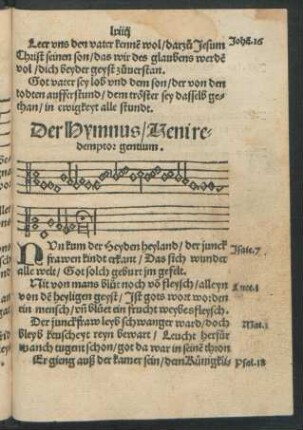 lxiiij
Leer vns den vater kennē wol / darzů Jesum Johā. 16
Christ seinen son / das wir des glaubens werdē
vol / dich beyder geyst zůuerstan.
Got vater sey lob vnd dem son / der von den
todten aufferstund / dem tröster sey dasselb ge-
than / in ewigkeyt alle stunde.
Der Hymnus / Veni re-
demptor gentium.
NVn kum der Heyden heyland / der junck Isaie. 7
frawen kindt erkant / Das sich wunder
alle welt / Got solch geburt jm gestelt.
Nit von mans blůt noch vō fleysch / alleyn Luce. 1
von dē heyligen geyst / Ist gots wort worden
ein mensch / vñ blüet ein frucht weybes fleysch.
Der junckfraw leyb schwanger ward / doch Mat. 1
bleyb keuscheyt reyn bewart / Leucht herfür
manch tugent schon / got da war in seinē thron
Er gieng auß der kamer sein / dem Künigkli- Psal. 18